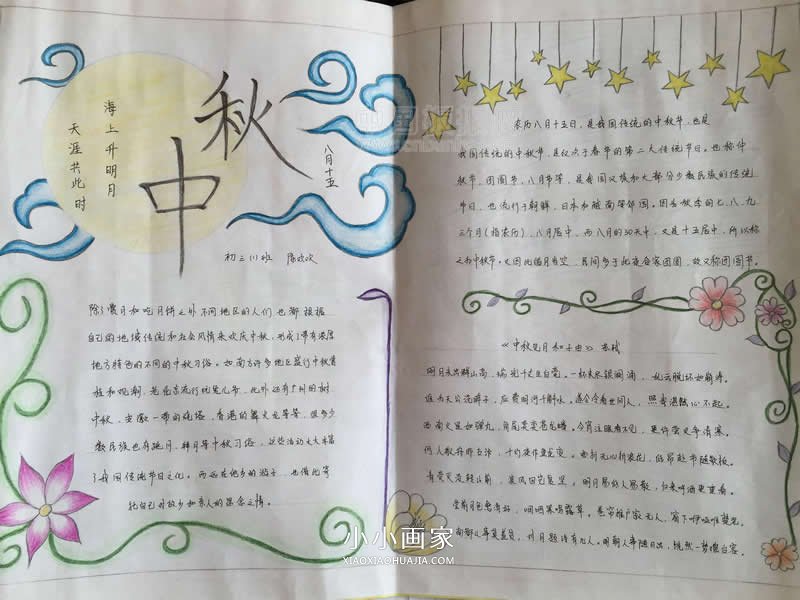 海上升明月
天涯共此时
中秋
八月十五
初三(1)班 陈欢欢
除了赏月和吃月饼之外不同地区的人们也都根据
自己的地域传统和社会风情来欢庆中秋,形成了带有浓厚
地方特色的不同的中秋习俗。如南方许多地区盛行中秋赏
桂和观潮,老北京流行玩兔儿爷,此外还有广州的树
中秋,安徽一带的烧塔,香港的舞火龙等等。很多少
数民族也有跳月,拜月等中秋习俗,这些活动大大丰富
了我国传统节日文化。而远在他乡的游子,也借此寄
托自己对故乡和亲人的思念之情。
农历八月十五日,是我国传统的中秋节,也是
我国传统的中秋节,是仅次于春节的第二大传统节日。也称仲
秋节、团圆节、八月节等,是我国汉族和大部分少数民族的传统
节日,也流行于朝鲜、日本和越南等邻国。因为秋季的七、八、九
三个月(指农历),八月居中,而八月的30天中,又是十五居中,所以称
之为中秋节。又因此临月当空,民间多于此夜合家团圆,故又称团圆节。
《中秋见月和子由》苏轼
明月未出群山高,瑞光千丈生白毫。一杯未尽银阙涌,乱云脱坏如崩涛。
谁为天公洗眸子,应费明河千斛水。遂令冷看世间人,照我湛然心不起。
西南火星如弹丸,角尾奕奕苍龙蟠。今宵注眼看不见,更许萤火争清寒。
何人舣舟临古汴,千灯夜作鱼龙变。曲折无心逐浪花,低昂赴节随歌板。
青荧灭没转山前,浪飐风回岂复坚。明月易低人易散,归来呼酒更重看。
堂前月色愈清好,咽咽寒螀鸣露草。卷帘推户寂无人,窗下咿哑唯楚老。
南都从事莫羞贫,对月题诗有几人。明朝人事随日出,恍然一梦瑶台客。
小小画家
XIAOXIAOHUAJIA.COM